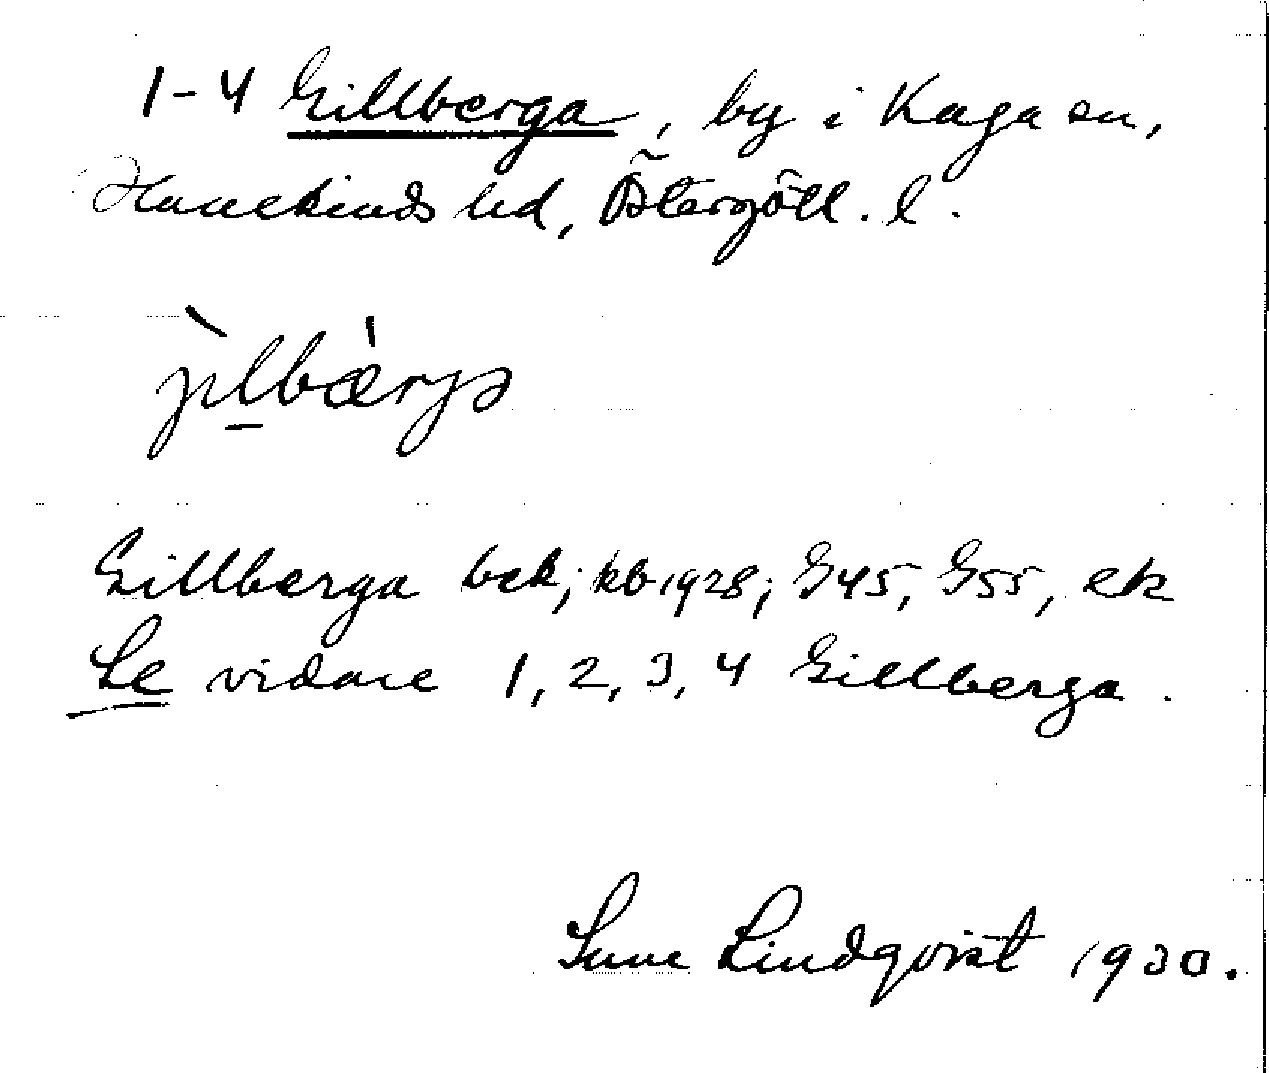 1-4 Gillberga, by i Kaga sn,
Hanekinds hd, Östergötl. l.
jìlbæ̀rjə
Gillberga bek; kb 1928; G45, G55, ek
Se vidare 1, 2, 3, 4 Gillberga.
Sune Lindqvist 1930.